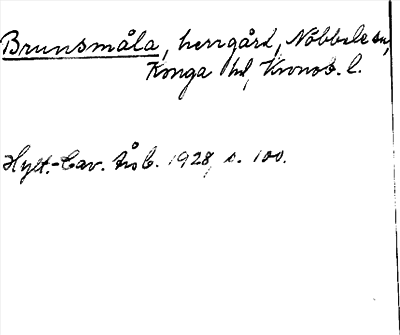 Brunsmåla, herrgård, Nöbbele sn,
Konga hd, Kronob. l.
Hylt.-Cav. årsb. 1928, s. 100.